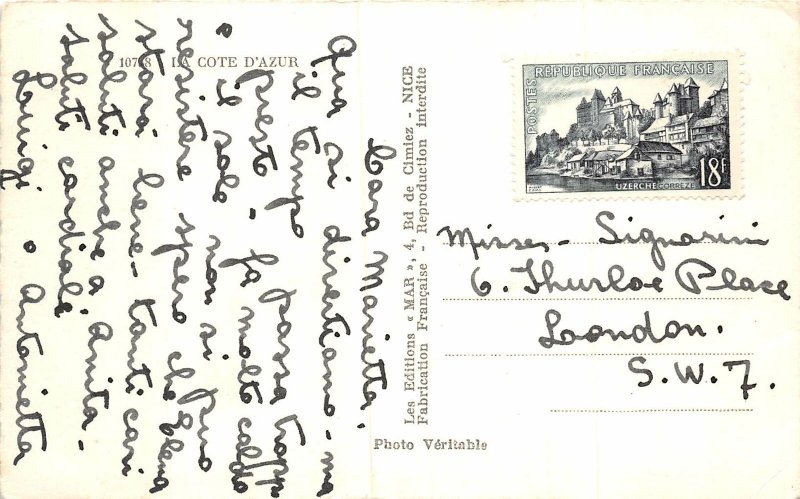 10738 LA COTE D'AZUR
Cara Marietta,
Qua si divertiamo - ma
il tempo passa troppo
presto - fa molto caldo
il sole non si puo
resistere spero che Elena
stara bene - tanti cari
saluti anche a Anita -
saluti cordiali
Luigi e Antonietta
Les Editions « MAR », 4, Bd de Cimiez - NICE
Fabrication Française - Reproduction interdite
Photo Véritable
POSTES
RÉPUBLIQUE FRANÇAISE
UZERCHE CORREZE
18F
Misses - Signorini
6. Thurloe Place
London.
S.W.7.